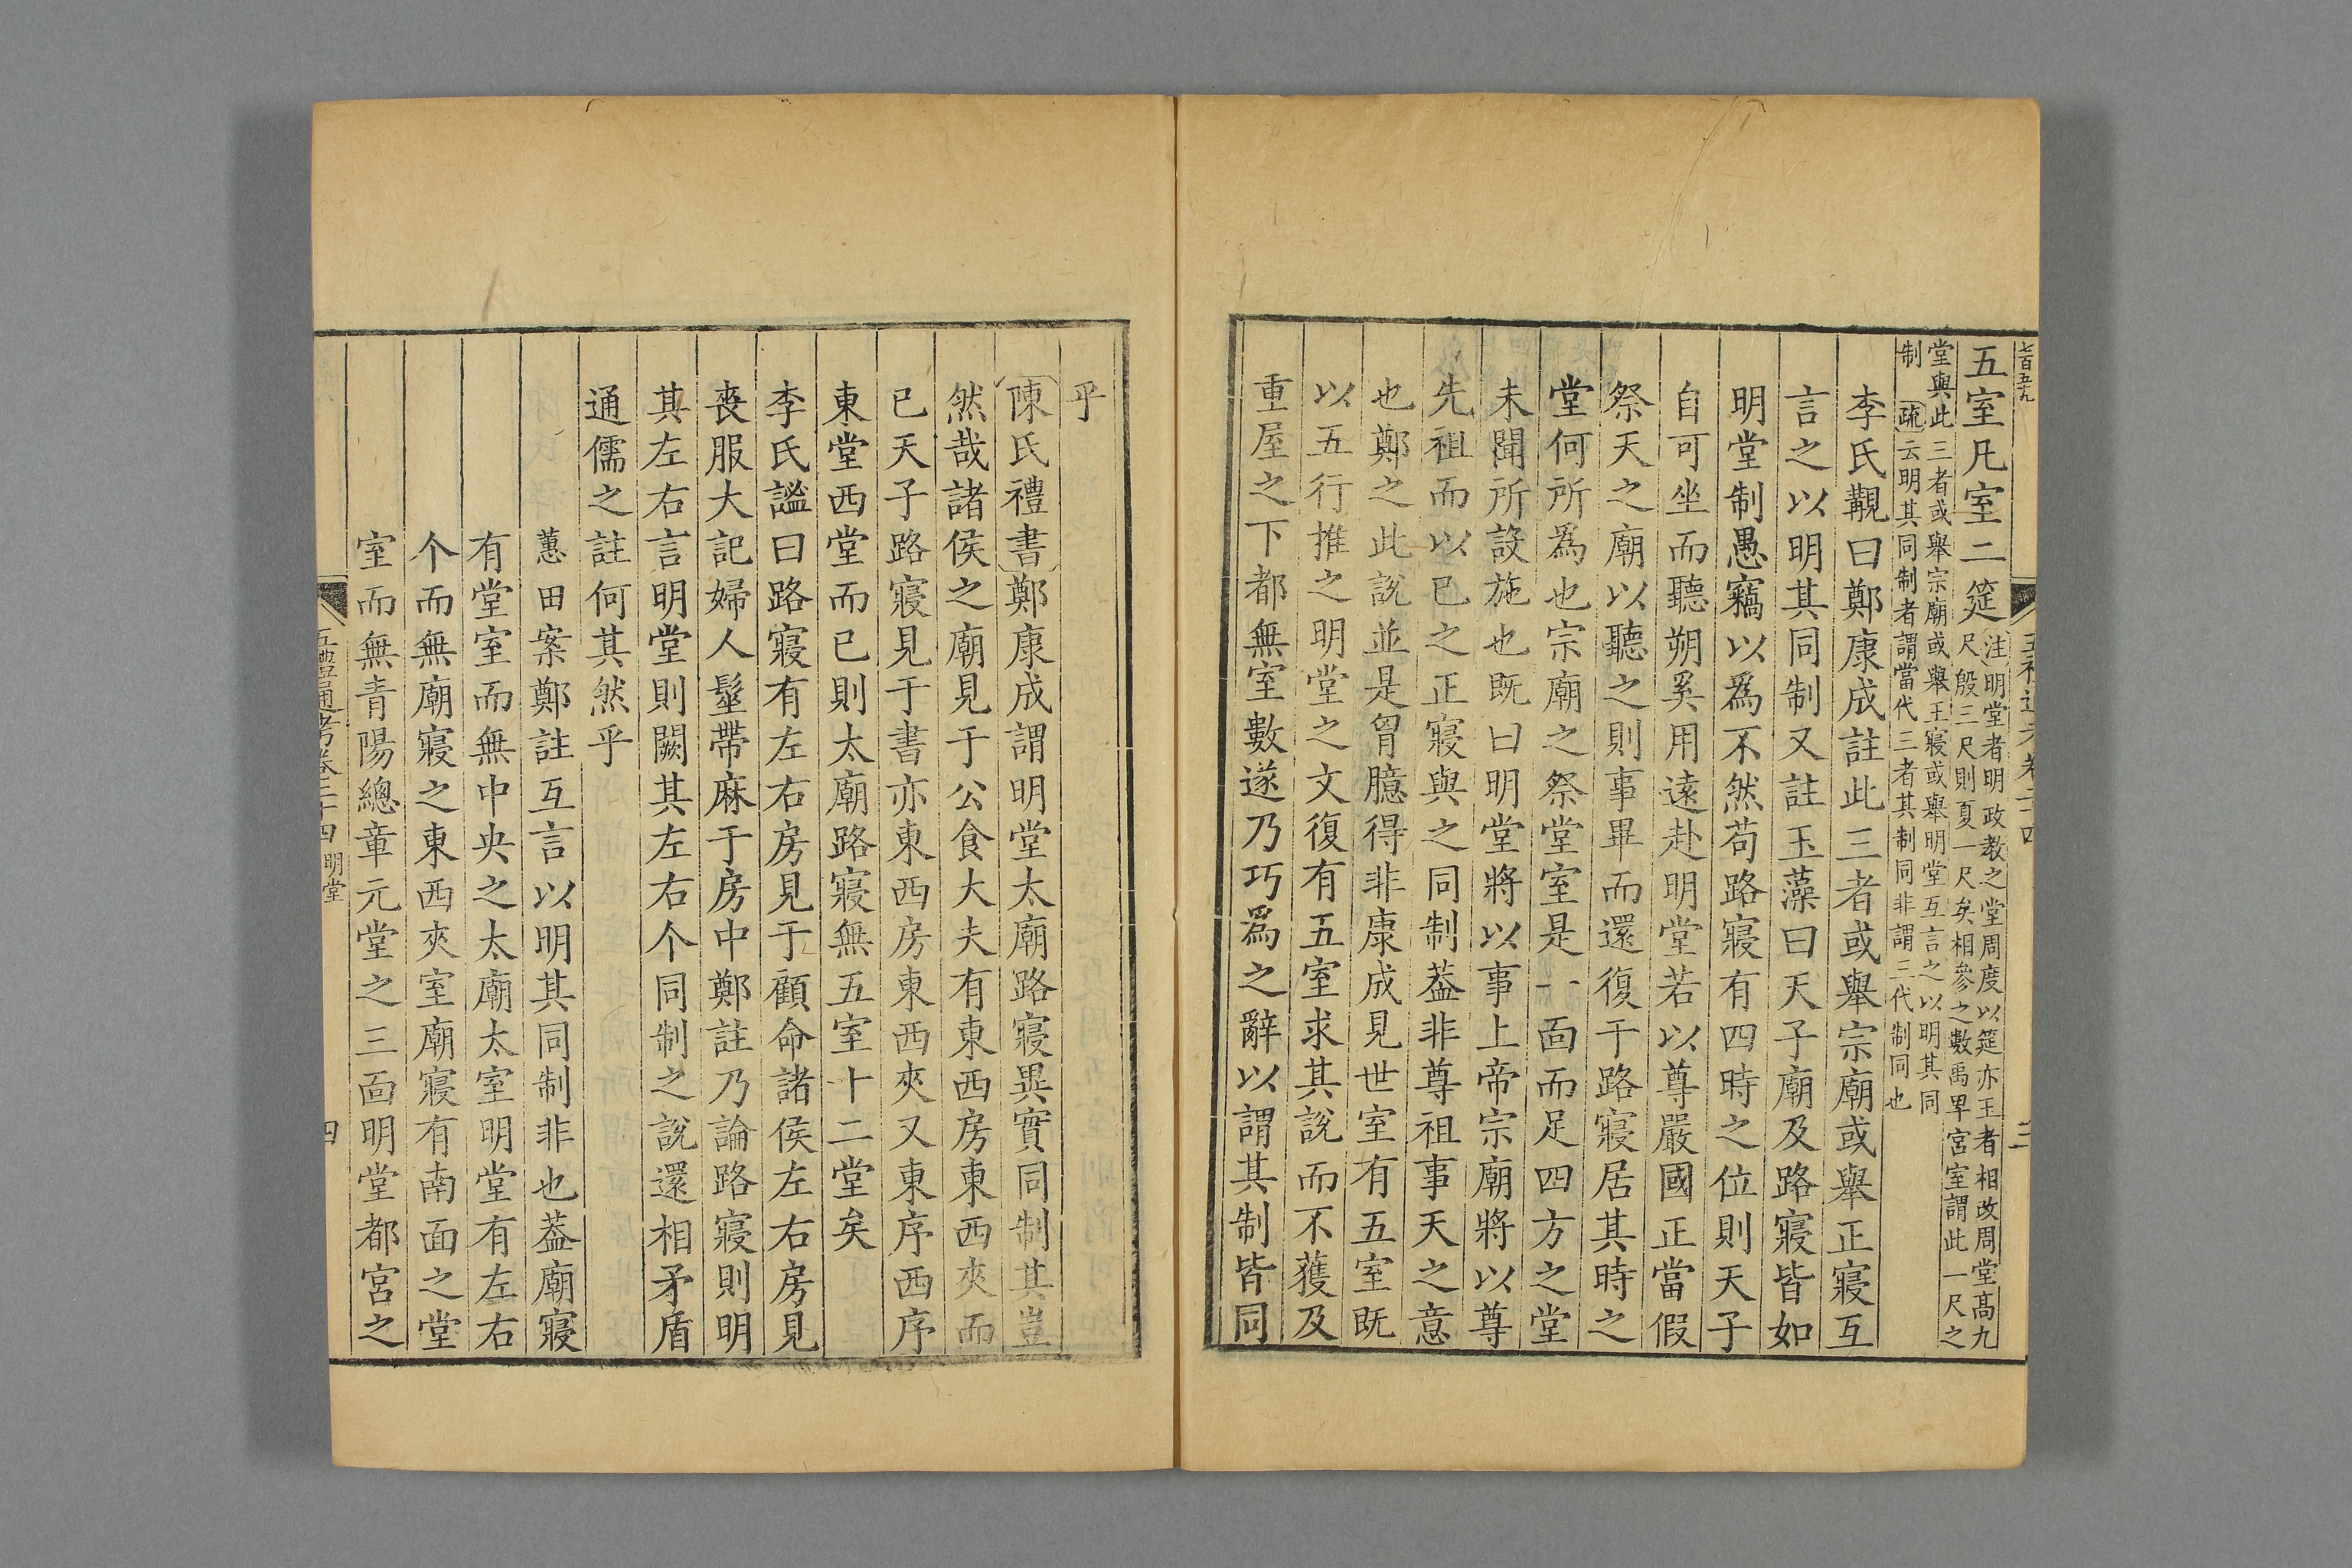 五室凡室二筵注明堂者明政教之堂周度以筵亦王者相改周堂高九
尺殷三尺則夏一尺矣相參之數禹卑宮室謂此一尺之
堂與此三者或舉宗廟或舉王寢或舉明堂互言之以明其同
制　疏云明其同制者謂當代三者其制同非謂三代制同也
李氏覯曰鄭康成註此三者或舉宗廟或舉正寢互
言之以明其同制又註玉藻曰天子廟及路寢皆如
明堂制愚竊以爲不然苟路寢有四時之位則天子
自可坐而聽朔奚用遠赴明堂若以尊嚴國正當假
祭天之廟以聽之則事畢而還復于路寢居其時之
堂何所爲也宗廟之祭堂室是一面而足四方之堂
未聞所設施也既曰明堂將以事上帝宗廟將以尊
先祖而以已之正寢與之同制葢非尊祖事天之意
也鄭之此說並是胷臆得非康成見世室有五室既
以五行推之明堂之文復有五室求其說而不獲及
重屋之下都無室數遂乃巧爲之辭以謂其制皆同
乎
陳氏禮書鄭康成謂明堂太廟路寢異實同制其豈
然哉諸侯之廟見于公食大夫有東西房東西夾而
已天子路寢見于書亦東西房東西夾又東序西序
東堂西堂而已則太廟路寢無五室十二堂矣
李氏謐曰路寢有左右房見于顧命諸侯左右房見
喪服大記婦人髽帶麻于房中鄭註乃論路寢則明
其左右言明堂則闕其左右个同制之說還相矛盾
通儒之註何其然乎
蕙田案鄭註互言以明其同制非也葢廟寢
有堂室而無中央之太廟太室明堂有左右
个而無廟寢之東西夾室廟寢有南面之堂
室而無青陽總章元堂之三面明堂都宮之
五禮通考卷二十四　明堂　四